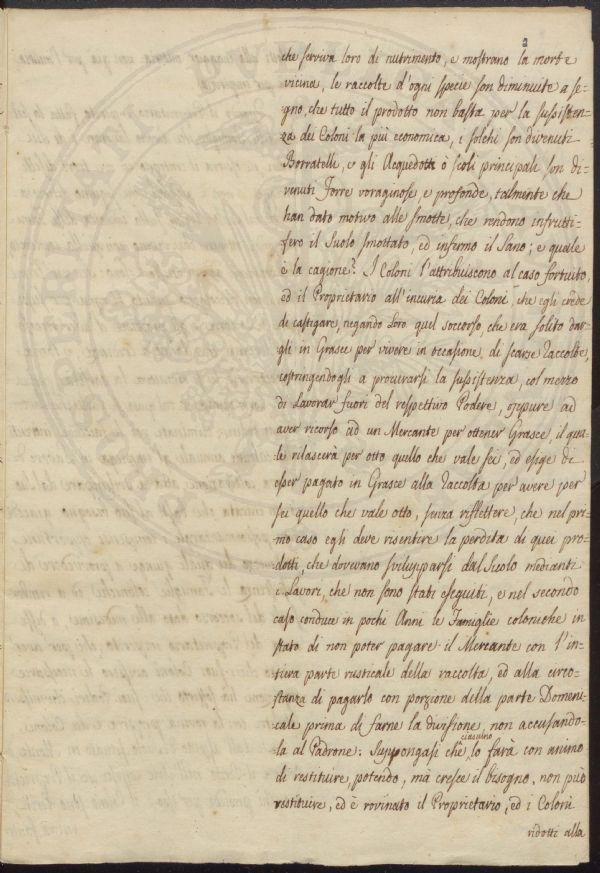 2
che serviva loro di nutrimento, e mostrano la morte
vicina, le raccolte d'ogni specie son diminuite a se-
gno, che tutto il prodotto non basta per la sussisten-
za dei Coloni la più economica, i solchi son divenuti
Borratelli, e gli Acquedotti ò scoli principali son di-
venuti Torre voraginose, e profonde, talmente che
han dato motivo alle smotte, che rendono infrutti-
fero il Suolo smottato, ed infermo il Sano; e quale
è la cagione? I Coloni l'attribuiscono al caso fortuito,
ed il Proprietario all'incuria dei Coloni, che egli crede
di castigare, negando Loro quel soccorso, che era solito dar-
gli in Grasce per vivere in occasione, di scarse raccolte,
costringendogli a procurarsi la sussistenza, col mezzo
di Lavorar fuori del respettivo Podere, oppure ad
aver ricorso ad un Mercante per ottener Grasce, il qua-
le rilascerà per otto quello che vale sei, ed esige di
esser pagato in Grasce alla raccolta per avere per
sei quello che vale otto, senza riflettere, che nel pri-
mo caso egli deve risentire la perdita di quei pro-
dotti, che dovevano svilupparsi dal Suolo medianti
i Lavori, che non sono stati eseguiti, e nel secondo
caso conduce in pochi Anni le Famiglie coloniche in
stato di non poter pagare il Mercante con l'in-
tiera parte rusticale della raccolta, ed alla circo-
stanza di pagarlo con porzione della parte Domeni-
cale prima di farne la divisione, non accusando-
la al Padrone: Suppongasi che, lo farà con animo
di restituire, potendo, mà cresce il bisogno, non può
restituire, ed è rovinato il Proprietario, ed i Coloni
ridotti alla